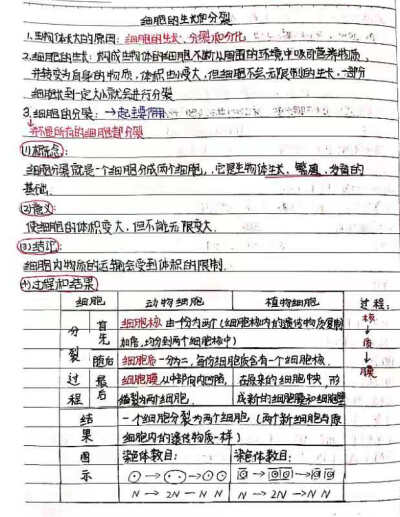 细胞的生长和分裂
1.生物体长大的原因:细胞的生长、分裂和分化
2.细胞的生长:构成生物体的细胞不断从周围的环境中吸收营养物质,
并转变为自身的物质,体积由小变大,但细胞不会无限制的生长,一部分
细胞长到一定大小就会进行分裂
3.细胞的分裂:→起主要作用
并不是所有的细胞都分裂
(1)概念:
细胞分裂就是一个细胞分成两个细胞,它是生物体生长、繁殖、发育的
基础.
(2)意义:
使细胞的体积变大,但不能无限变大.
(3)结论:
细胞内物质的运输会受到体积的限制.
(4)过程和结果
细胞 动物细胞 植物细胞 过程:
分裂过程 首先 细胞核由一份为两个(细胞核内的遗传物质复制 核
加倍,均分到两个细胞核中) ↓
随后 细胞质一分为二,每份细胞质含有一个细胞核. 质
↓
最后 细胞膜从中部向内凹陷, 在原来的细胞中央,形 膜
缢裂为两细胞. 成新的细胞膜和细胞壁
结果 一个细胞分裂为两个细胞(两个新细胞与原
细胞内的遗传物质一样)
图示 染色体数目: 染色体数目:
N → 2N → N N N → 2N → N N